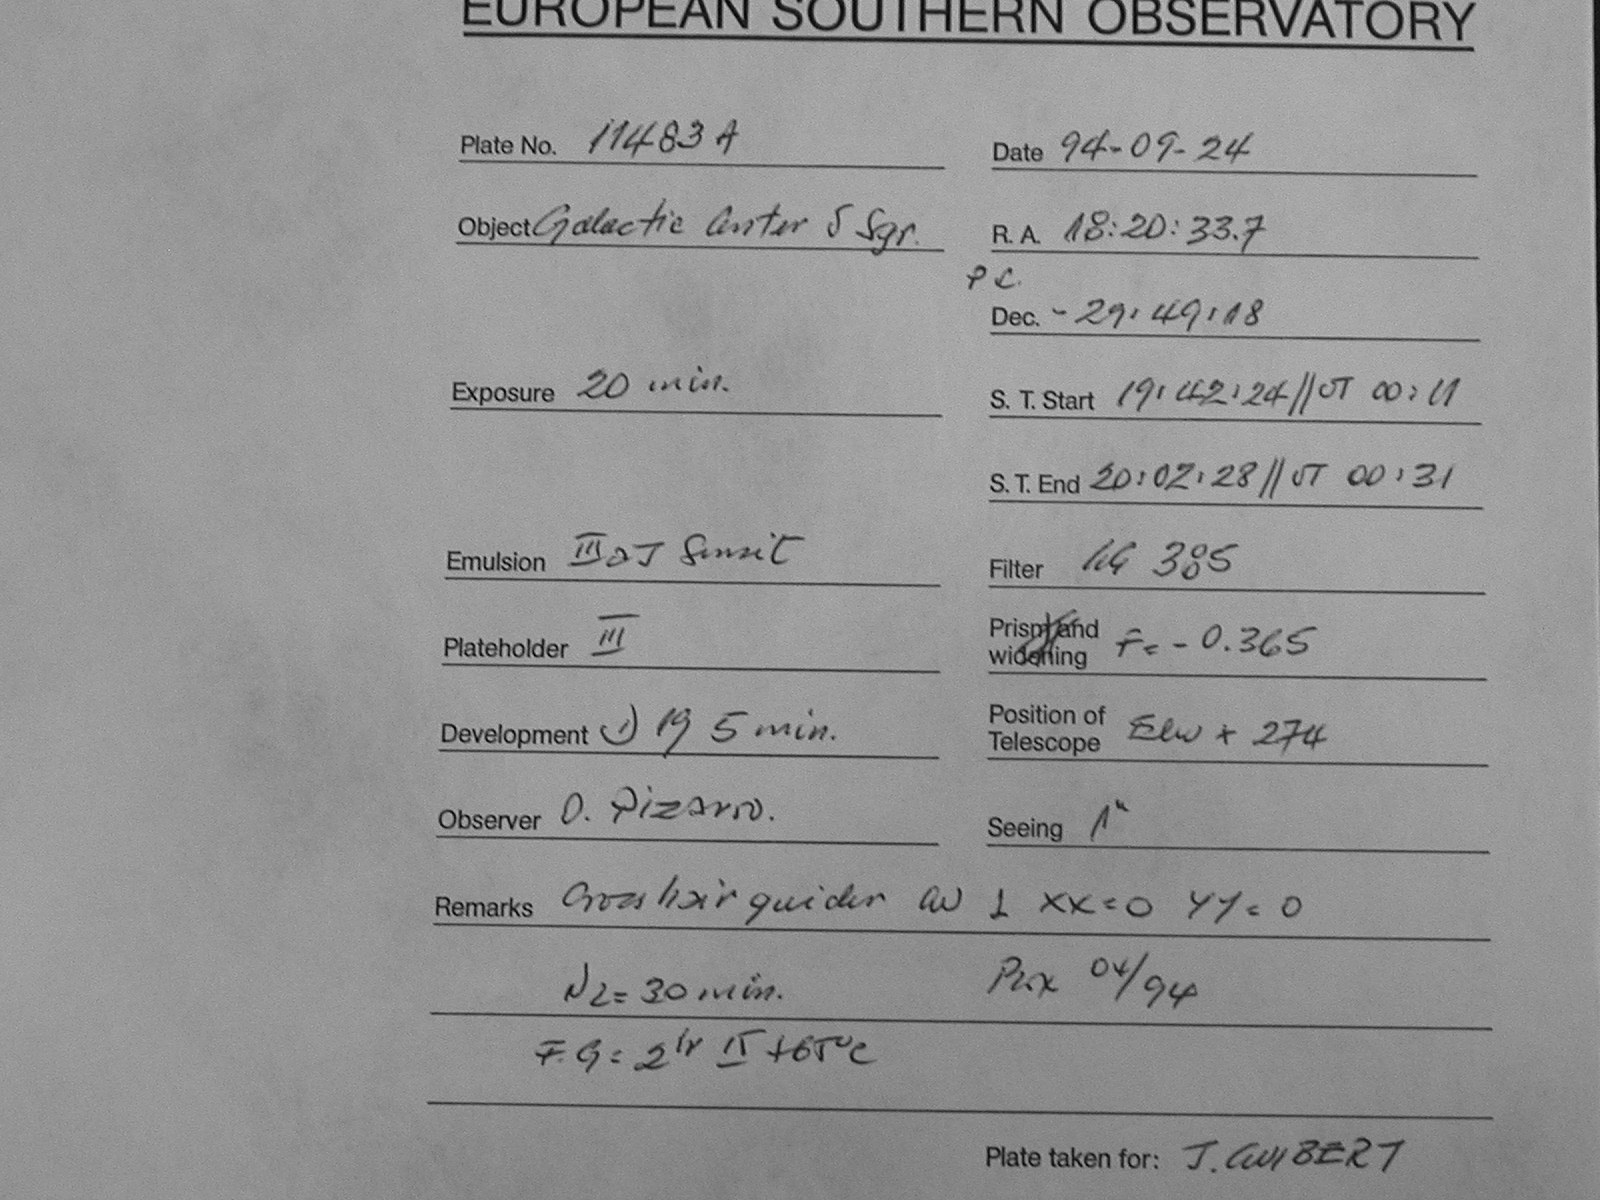 EUROPEAN SOUTHERN OBSERVATORY
Plate No. 11483 A
Date 94-09-24
Object Galactic Center δ Sgr.
R. A. 18:20:33.7
P C.
Dec. - 29:49:18
Exposure 20 min.
S. T. Start 19:42:24 // UT 00:11
S. T. End 20:02:28 // UT 00:31
Emulsion III a J
Filter GG 385
Plateholder III
Prism and widening F = - 0.365
Development 19 5 min.
Position of Telescope + 274
Observer O. Pizarro.
Seeing 1"
Remarks Crosshair guider XX=0 YY=0
N2= 30 min. 04/94
F.G = 2 hr +65°C
Plate taken for: J. GUIBERT